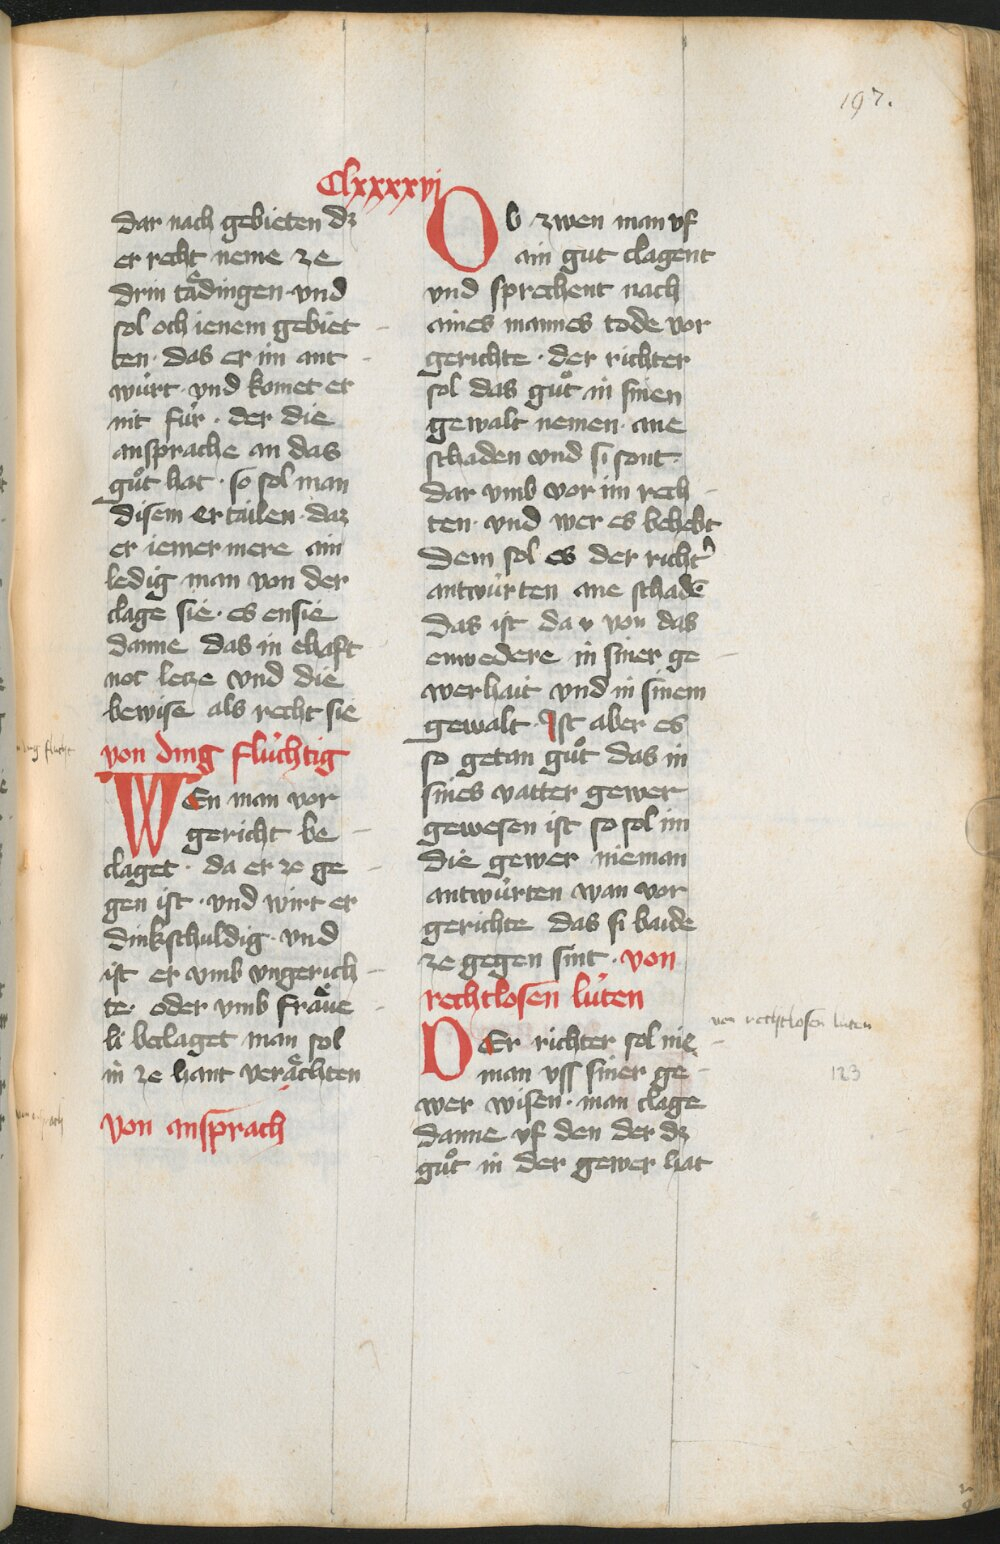 197.
Clxxxxvi
dar nach gebieten dz
er recht neme ze
drin taͤdingen · vnd
sol och ienem gebiet
ten · das er im ant
wúrt · vnd komet er
nit fúr · der die
ansprache an das
guͦt hat · so sol man
disem ertailen · daz
er iemer mere ain
ledig man von der
clage sie · es ensie
danne das in ehaft
not letze vnd die
bewise als recht sie
von ding flúchtig
WEn man vor
gericht be
claget · da er ze ge
gen ist · vnd wirt er
dinkschuldig · vnd
ist er vmb vngerich
te · oder vmb fraͤue
li beclaget man sol
in ze hant veraͤchten
von ansprach
Ob zwen man vf
ain gut clagent
vnd sprechent nach
aines mannes tode vor
gerichte · der richter
sol das guͦt in sinen
gewalt nemen · ane
schaden vnd si sont
dar vmb vor im rech
ten · vnd wer es behebt
dem sol es der richtˀ
antwúrten ane schadē
das ist da von das
enwedere in siner ge
werhait vnd in sinem
gewalt · Ist aber es
so getan guͦt das in
sines vatter gewer
gewesen ist so sol im
die gewer nieman
antwúrten wan vor
gerichte das si baide
ze gegen sint · von
rechtlosen lúten
DEr richter sol nie
man vss siner ge
wer wisen · man clage
danne vf den der dz
guͦt in der gewer hat
von rechtlosen luten
123